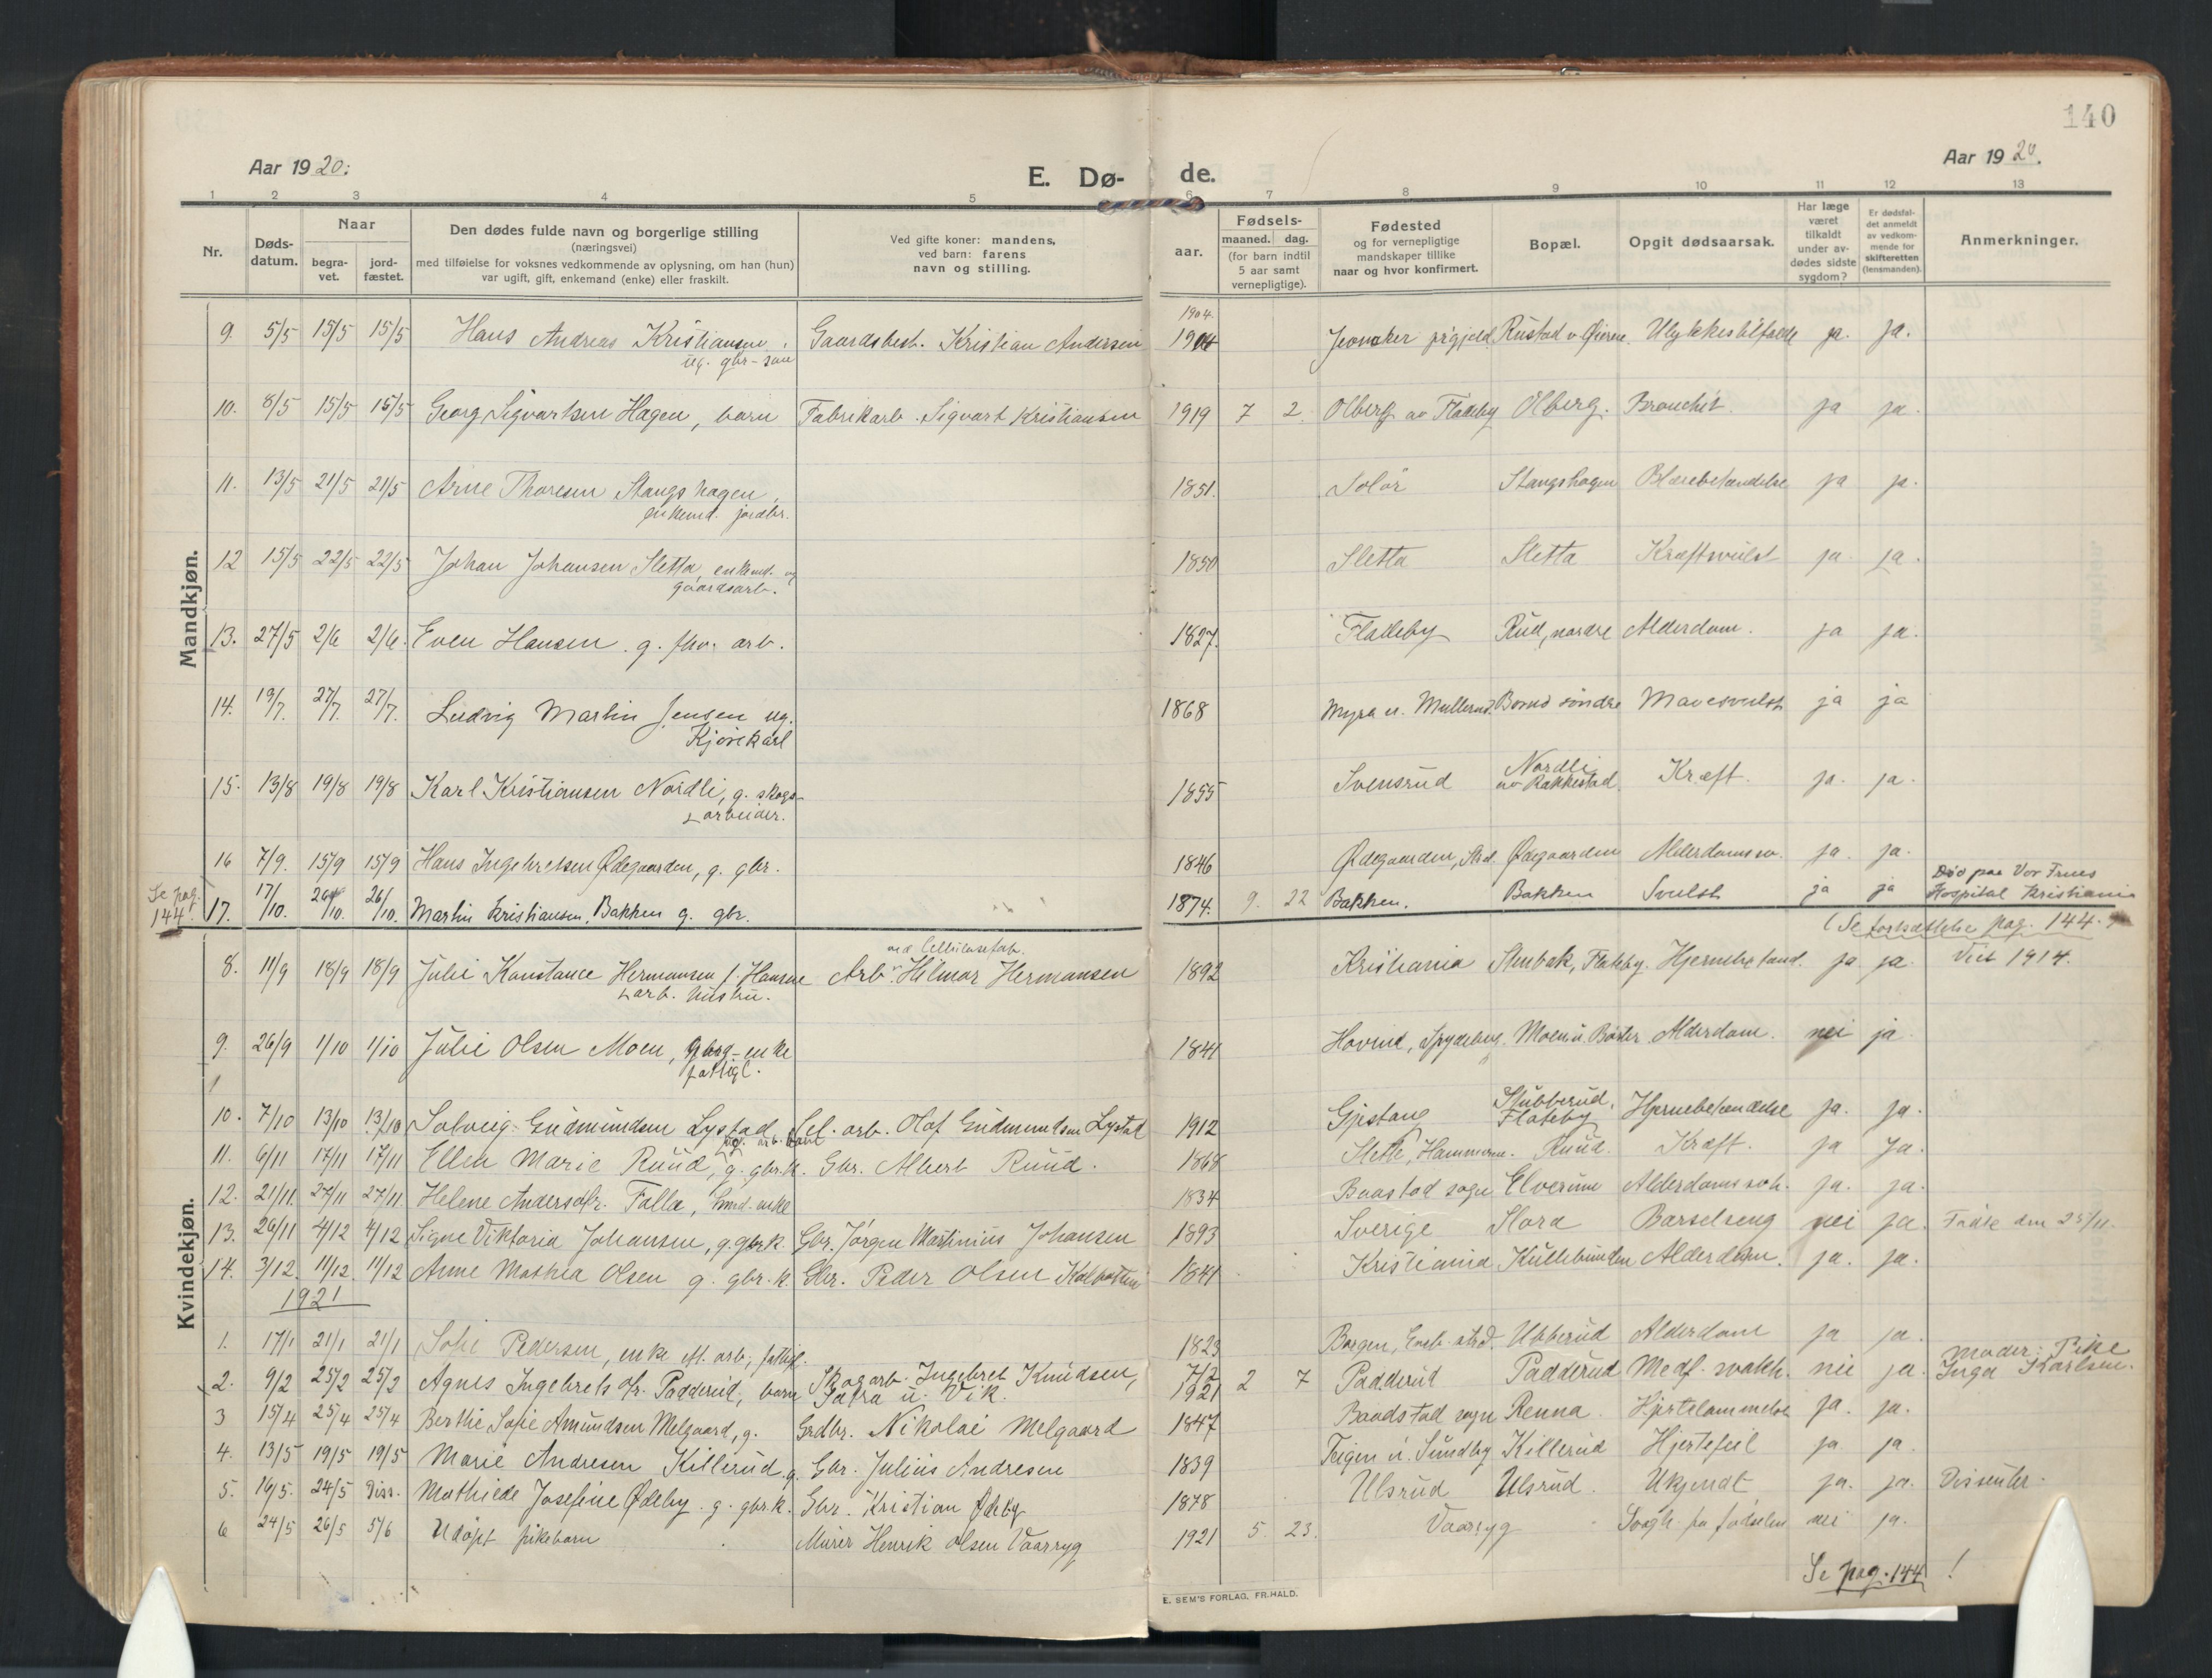 140
Aar 1920. E. Dø- de. Aar 1920.
1 2 3 4 5 6 7 8 9 10 11 12 13
Nr. Døds-datum. Naar begra-vet. jord-fæstet. Den dødes fulde navn og borgerlige stilling (næringsvei) med tilføielse for voksnes vedkommende av oplysning, om han (hun) var ugift, gift, enkemand (enke) eller fraskilt. Ved gifte koner: mandens, ved barn: farens navn og stilling. Fødsels- aar. maaned. dag. (for barn indtil 5 aar samt vernepligtige). Fødested og for vernepligtige mandskaper tillike naar og hvor konfirmert. Bopæl. Opgit dødsaarsak. Har læge været tilkaldt under av-dødes sidste sygdom? Er dødsfal-det anmeldt av vedkom-mende for skifteretten (lensmanden). Anmerkninger.
Mandkjøn.
1904.
9. 5/5 15/5 15/5 Hans Andreas Kristiansen, Gaardsbest. Kristian Andersen 1904 Jevnaker prgjeld Rustad v Øieren. Ulykkestilfælde ja. ja.
ug. gbr-søn
10. 8/5 15/5 15/5 Georg Sigvartsen Hagen, barn Fabrikarb. Sigvart Kristiansen 1919 7 2. Olberg av Flateby Olberg. Bronchit. ja ja.
11. 13/5 21/5 21/5 Arne Thoresen Stangshagen, 1851. Solør Stangshagen Blærebetændelse ja ja.
enkemd. jordbr.
12 15/5 22/5 22/5 Johan Johansen Sletta enkemd. og 1850 Sletta Sletta Kræftsvulst ja. ja.
gaardsarb.
13. 27/5 2/6 2/6. Even Hansen. g. fhv. arb. 1827. Flateby Rud, nordre Alderdom. ja ja.
14. 19/7. 27/7. 27/7. Ludvig Martin Jensen ug. 1868 Myra u. Mullerud. søndre Mavesvulst ja ja
Kjørekarl
15. 13/8 19/8 19/8 Karl Kristiansen Nordli, g. skogs- 1855 Svensrud Nordli av Rakkestad. Kræft. ja. ja.
arbeider.
16 7/9. 15/9 15/9 Hans Ingebretsen Ødegaarden, g. gbr. 1846 Ødegaarden, Ødegaarden Alderdomssv. ja. ja.
Se pag. 144. 17. 17/10. 26/10. 26/10. Martin Kristiansen, Bakken g. gbr. 1874. 9. 22 Bakken. Bakken Svulst ja ja Død paa Vor Frues Hospital Kristiania
(Se fortsættelse pag. 144.
Kvindekjøn.
ved Cellulosefab.
8. 11/9 18/9 18/9 Julie Konstance Hermansen f. Hansen Arb. Hilmar Hermansen 1892 Kristiania Stubak, Flateby. Hjernebetænd. ja ja. Viet 1914.
arb. hustru.
9. 26/9 1/10 1/10 Julie Olsen Moen, enke 1841 Hovind, Spydeberg. Moen u. Alderdom. nei ja.
fattigl.
10. 7/10 13/10 13/10 Solveig Gudmundsen Lystad Cel. arb. Olaf Gudmundsen Lystad 1912 Gjestang Stubberud, Flateby Hjernebetændelse ja. ja.
ug. arb. barn
11. 6/11 17/11 17/11 Ellen Marie Ruud, g. gbr.k. Gbr. Albert Ruud. 1868 Slette, Ruud. Kræft. ja ja.
12. 21/11. 27/11 27/11 Helene Andersdtr. Falla, enke 1834 Baastad sogn Elverum Alderdomssvh. ja. ja.
13. 26/11 4/12 4/12 Signe Viktoria Johansen, g. gbr.k. Gbr. Jørgen Martinius Johansen 1893 Sverige Slora Barselseng nei ja. Fødte den 25/11.
14. 3/12. 11/12. 11/12 Anne Mathea Olsen g. gbr.k. Gbr. Peder Olsen 1841 Kristiania Kullebunden Alderdom. ja. ja.
1921
1. 17/1 21/1 21/1 Sofie Pedersen, enke eft. arb., fattigl. 1823 Borgen, Ubberud Alderdom ja ja.
2. 9/2 25/2 25/2 Agnes Ingebrets dtr. Padderud, barn Skogarb. Ingebret Knudsen, u. Vik. 7/2 1921 2 7 Padderud Padderud Medf. svakh. nei ja. Moder: Pike Inga Karlsen.
3 15/4 25/4 25/4 Berthe Sofie Amundsen Melgaard, g. Grdbr. Nikolai Melgaard 1847 Baadstad sogn Renna. Hjertelammelse ja. ja.
4. 13/5 19/5 19/5 Marie Andresen Killerud g. Gbr. Julius Andresen 1839 Teigen u. Sundby Killerud Hjertefeil ja ja.
5. 16/5. 24/5 Diss. Mathilde Josefine Ødeby. g. gbr.k. Gbr. Kristian Ødeby 1878 Ulsrud Ulsrud. Ukjendt ja. ja. Dissenter.
6 24/5 26/5 5/6 Udøpt pikebarn Murer Henrik Olsen Vaarryg 1921 5. 23. Vaarryg Svagh. fra fødselen nei ja.
Se pag. 144 !
E. SEM'S FORLAG, FR.HALD.